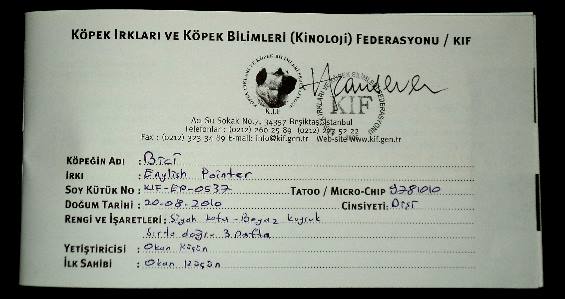 KÖPEK IRKLARI VE KÖPEK BİLİMLERİ (KİNOLOJİ) FEDERASYONU / KIF
KIF
Acı Su Sokak No.7, 34357 Beşiktaş, İstanbul
Telefonlar : (0212) 260 25 89 (0212) 227 52 22
Fax : (0212) 323 37 89 E-mail: info@kif.gen.tr Web-site www.kif.gen.tr
KÖPEĞİN ADI : Bici
IRKI : English Pointer
SOY KÜTÜK NO : KIF-EP-0537 TATOO / MICRO-CHIP 9281010
DOĞUM TARİHİ : 20-08-2010 CİNSİYETİ: Dişi
RENGİ VE İŞARETLERİ: Siyah kafa - Beyaz kuyruk
Sırta doğru 3 nokta
YETİŞTİRİCİSİ : Okan
İLK SAHİBİ : Okan